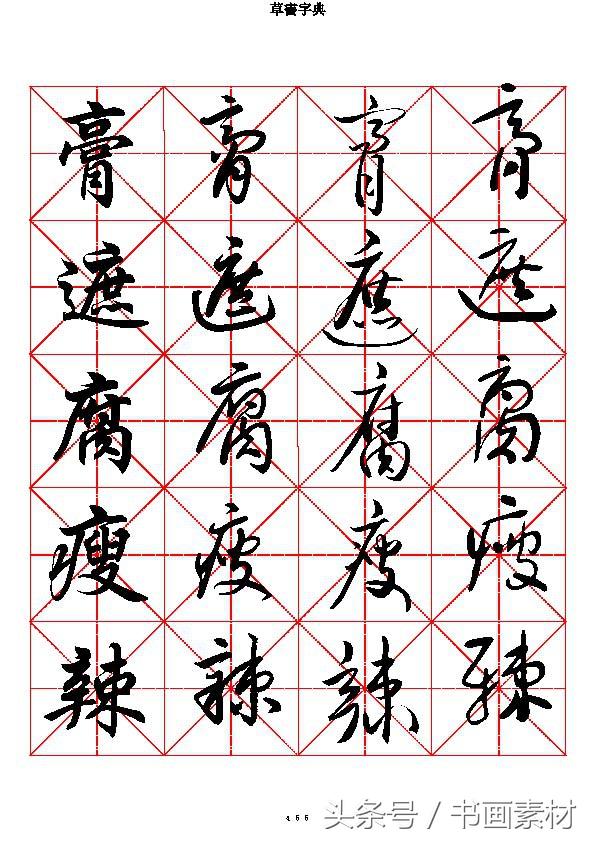 草書字典
膏膏膏膏
遮遮遮遮
腐腐腐腐
瘦瘦瘦瘦
辣辣辣辣
455
头条号 / 书画素材